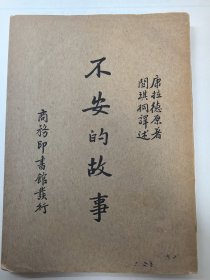 康拉德原著
閻琪桐譯述
不安的故事
商務印書館發行